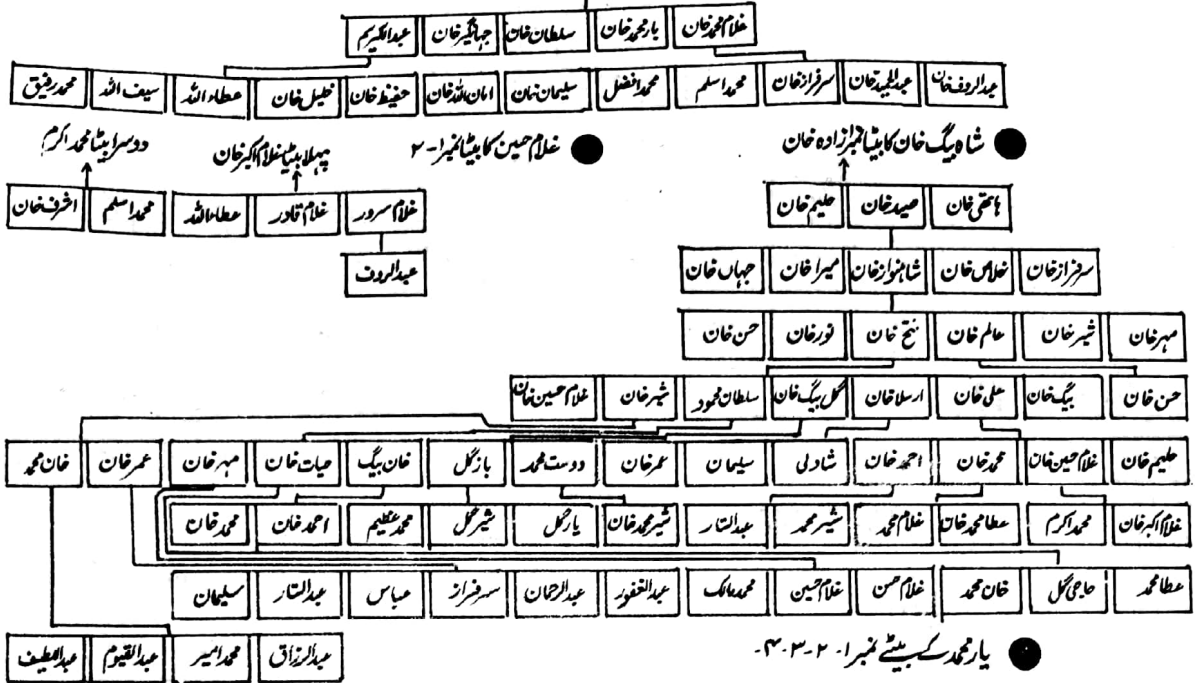 غلام محمد خان یار محمد خان سلطان خان جہانگیر خان عبدالکریم
عبدالروف خان عبدالمجید خان سرفراز خان محمد اسلم محمد افضل سلیمان خان امان اللہ خان حفیظ خان خلیل خان عطاء اللہ سیف اللہ محمد رفیق
● شاہ بیگ خان کا بیٹا نمبرا زادہ خان
● غلام حسین کا بیٹا نمبر ا-۲
پہلا بیٹا غلام اکبر خان
دوسرا بیٹا محمد اکرم
ہاتھی خان صید خان حلیم خان
غلام سرور غلام قادر عطاء اللہ محمد اسلم اشرف خان
عبدالروف
سرفراز خان خلاص خان شاہنواز خان میرا خان جہاں خان
مہر خان شیر خان عالم خان فتح خان نور خان حسن خان
حسن خان بیگ خان علی خان ارسلا خان گل بیگ خان سلطان محمود شیر خان غلام حسین خان
حلیم خان غلام حسین خان محمد خان احمد خان شادلی سلیمان عمر خان دوست محمد باز گل خان بیگ حیات خان مہر خان عمر خان خان محمد
غلام اکبر خان محمد اکرم عطا محمد خان غلام محمد شیر محمد عبدالستار شیر محمد خان یار گل شیر گل محمد عظیم احمد خان محمد خان
عطا محمد حاجی گل خان محمد غلام حسن غلام حسین محمد مالک عبدالغفور عبدالرحمان سرفراز عباس عبدالستار سلیمان
● یار محمد کے بیٹے نمبر ا- ۲-۳-۴-
عبدالرزاق محمد امیر عبدالقیوم عبدالطیف